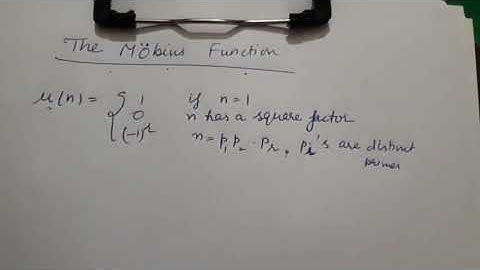 The Möbius Function
μ(n) = { 1 if n = 1
0 n has a square factor
(-1)^r n = p₁ p₂ ·· p_r, p_i's are distinct
primes